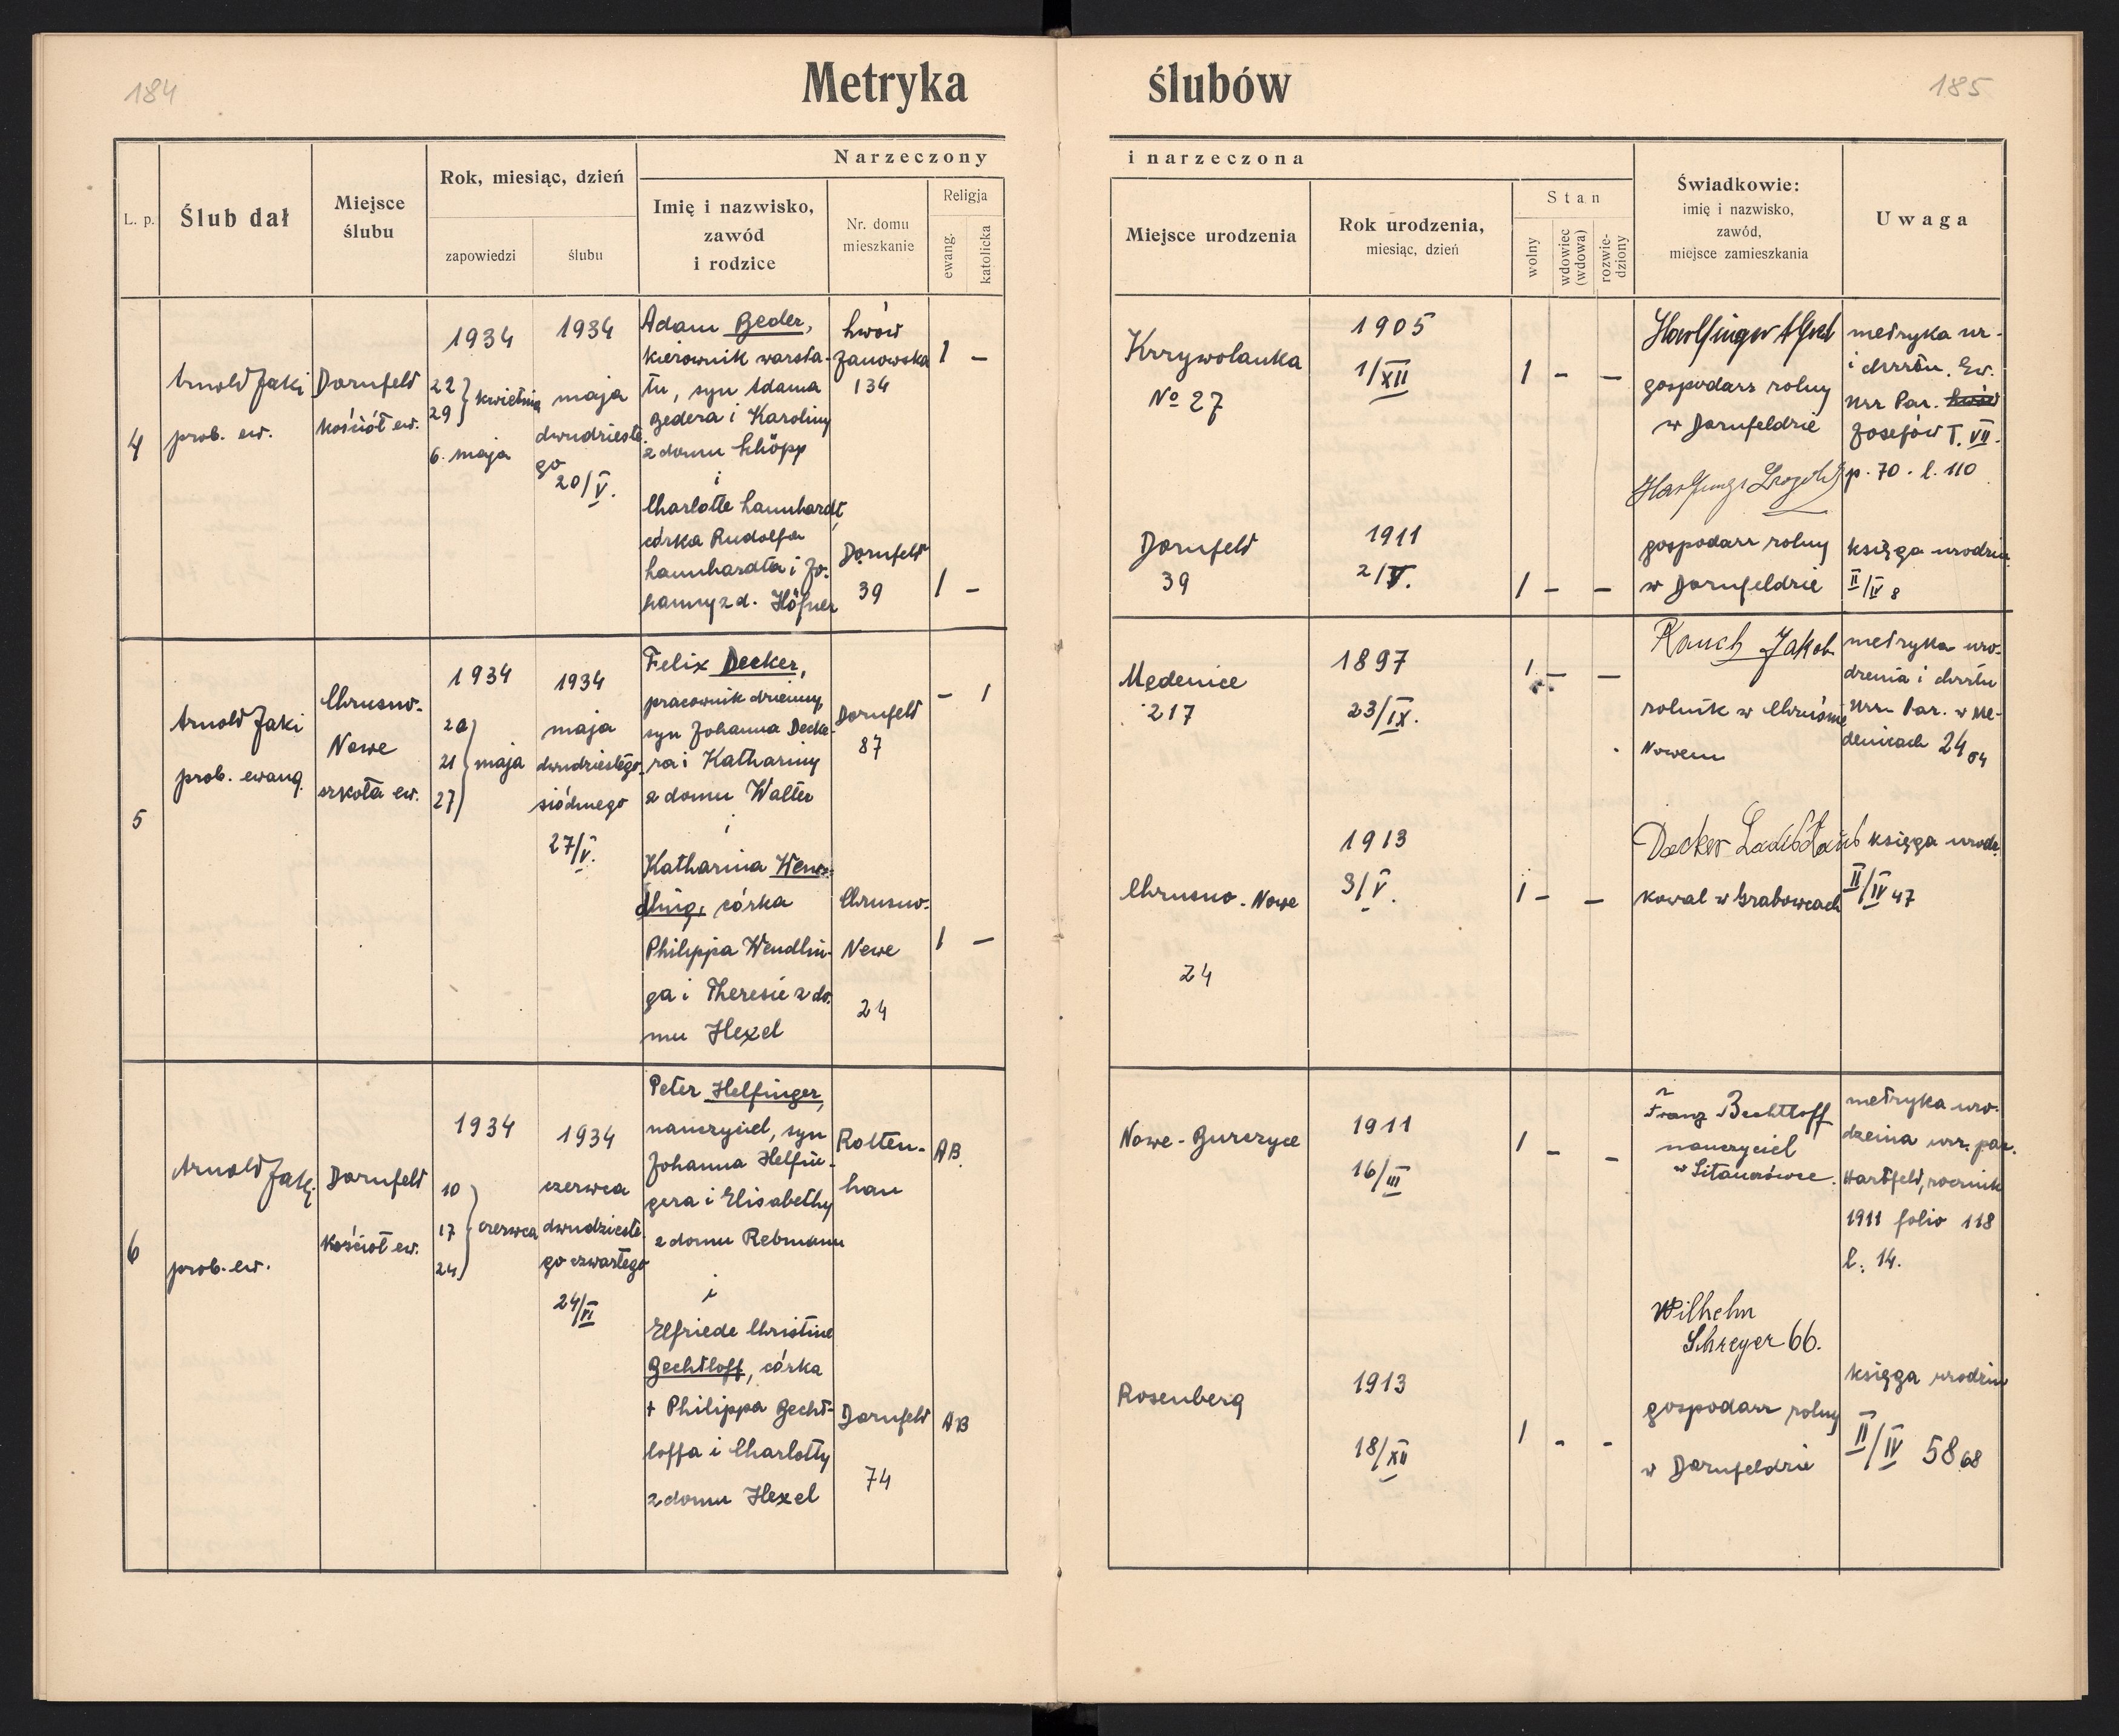 184
Metryka
L. p.
Ślub dał
Miejsce
ślubu
Rok, miesiąc, dzień
zapowiedzi
ślubu
Narzeczony
Imię i nazwisko,
zawód
i rodzice
Nr. domu
mieszkanie
Religja
ewang.
katolicka
4
Arnold Jaki
prob. ew.
Dornfeld
kościół ew.
1934
22
29
kwietnia
6. maja
1934
maja
dwudzieste-
go
20/V.
Adam Beder,
kierownik warsta-
tu, syn Adama
Bedera i Karoliny
z domu Schöpp
i
Charlotte Lannhardt,
córka Rudolfa
Lannhardta i Jo-
hanny z d. Höfner
Lwów
Janowska
134
Dornfeld
39
1 –
1 –
5
Arnold Jaki
prob. ewang.
Chrusno-
Nowe
szkoła ew.
1934
20
21
27
maja
1934
maja
dwudziestego
siódmego
27/V.
Felix Decker,
pracownik dzienny,
syn Johanna Decke-
ra i Kathariny
z domu Walter
i
Katharina Wen-
dling, córka
Philippa Wendlin-
ga i Theresie z do-
mu Hexel
Dornfeld
87
Chrusno-
Nowe
24
– 1
1 –
6
Arnold Jaki
prob. ew.
Dornfeld
kościoł ew.
1934
10
17
24
czerwca
1934
czerwca
dwudzieste-
go czwartego
24/VI
Peter Helfinger,
nauczyciel, syn
Johanna Helfin-
gera i Elisabethy
z domu Rebmann
i
Elfriede Christine
Bechtloff, córka
+ Philippa Becht-
loffa i Charlotty
z domu Hexel
Rotten-
han
Dornfeld
74
AB.
AB
185
ślubów
i narzeczona
Miejsce urodzenia
Rok urodzenia,
miesiąc, dzień
Stan
wolny
wdowiec
(wdowa)
rozwie-
dziony
Świadkowie:
imię i nazwisko,
zawód,
miejsce zamieszkania
Uwaga
Krzywolanka
No 27
1905
1/XII
1 – –
gospodarz rolny
w Dornfeldzie
metryka ur.
i chrztu. Ew.
Urz Par.
Josefów T. VII.
p. 70. l. 110
Dornfeld
39
1911
2/V.
1 – –
gospodarz rolny
w Dornfeldzie
księga urodzin
II/IV 8
Medenice
217
1897
23/IX.
1 – –
Rauch Jakob
rolnik w Chruśnie
Nowem
metryka uro-
dzenia i chrztu
Urz. Par. w Me-
denicach 24 04
Chrusno-Nowe
24
1913
3/V.
1 – –
Decker
kowal w Grabowcach
księga urodz.
II/IV 47
Nowe-Burczyce
1911
16/III
1 – –
Franz Bechtloff
nauczyciel
metryka uro-
dzenia urz. par.
Hartfeld, rocznik
1911 folio 118
l. 14.
Rosenberg
1913
18/XII
1 – –
Wilhelm
Schreyer 66.
gospodarz rolny
w Dornfeldzie
księga urodzin
II/IV 58 68